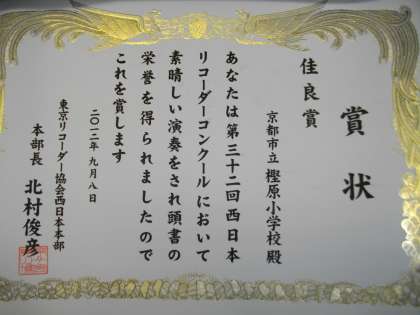 賞状
佳良賞
京都市立 樫原小学校 殿
あなたは第三十二回西日本
リコーダーコンクールにおいて
素晴しい演奏をされ頭書の
栄誉を得られましたので
これを賞します
二〇一二年 九月 八日
東京リコーダー協会西日本本部
本部長 北村俊彦